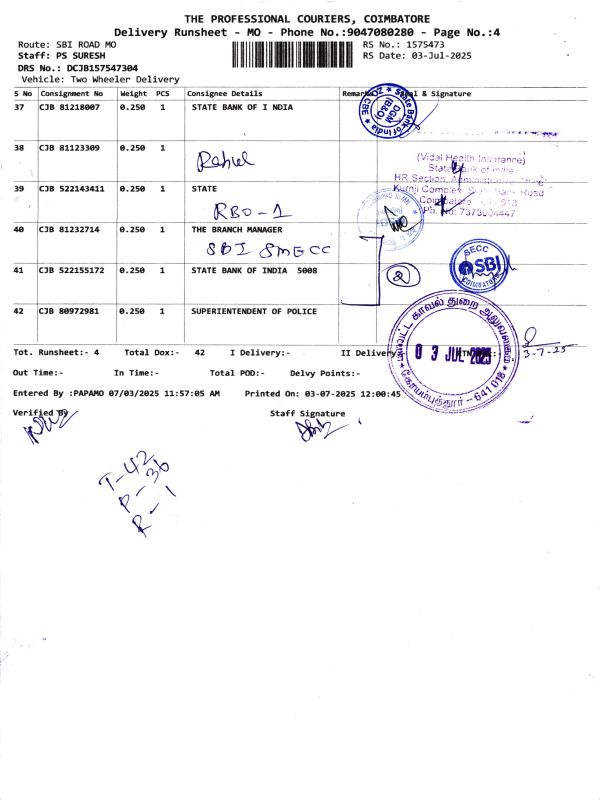 THE PROFESSIONAL COURIERS, COIMBATORE
Delivery Runsheet - MO - Phone No.:9047080280 - Page No.:4
Route: SBI ROAD MO RS No.: 1575473
Staff: PS SURESH RS Date: 03-Jul-2025
DRS No.: DCJB157547304
Vehicle: Two Wheeler Delivery
S No Consignment No Weight PCS Consignee Details Remarks & Signature
37 CJB 81218007 0.250 1 STATE BANK OF I NDIA
State Bank of India
DGM
(B&O)
CBE
38 CJB 81123309 0.250 1
Rahul
(Vidal Health Insurance)
State Bank of India
HR Section,
39 CJB 522143411 0.250 1 STATE
RBO-1
Ph. No: 7373004447
40 CJB 81232714 0.250 1 THE BRANCH MANAGER
SBI SMECC
41 CJB 522155172 0.250 1 STATE BANK OF INDIA 5008
2
SECC
SBI
COIMBATORE
42 CJB 80972981 0.250 1 SUPERIENTENDENT OF POLICE
மாவட்ட காவல் துறை அலுவலகம்
0 3 JUL 2025
கோயம்புத்தூர் - 641 018
3-7-25
Tot. Runsheet:- 4 Total Dox:- 42 I Delivery:- II Delivery
Out Time:- In Time:- Total POD:- Delvy Points:-
Entered By :PAPAMO 07/03/2025 11:57:05 AM Printed On: 03-07-2025 12:00:45
Verified By Staff Signature
T-42
P-36
R-1